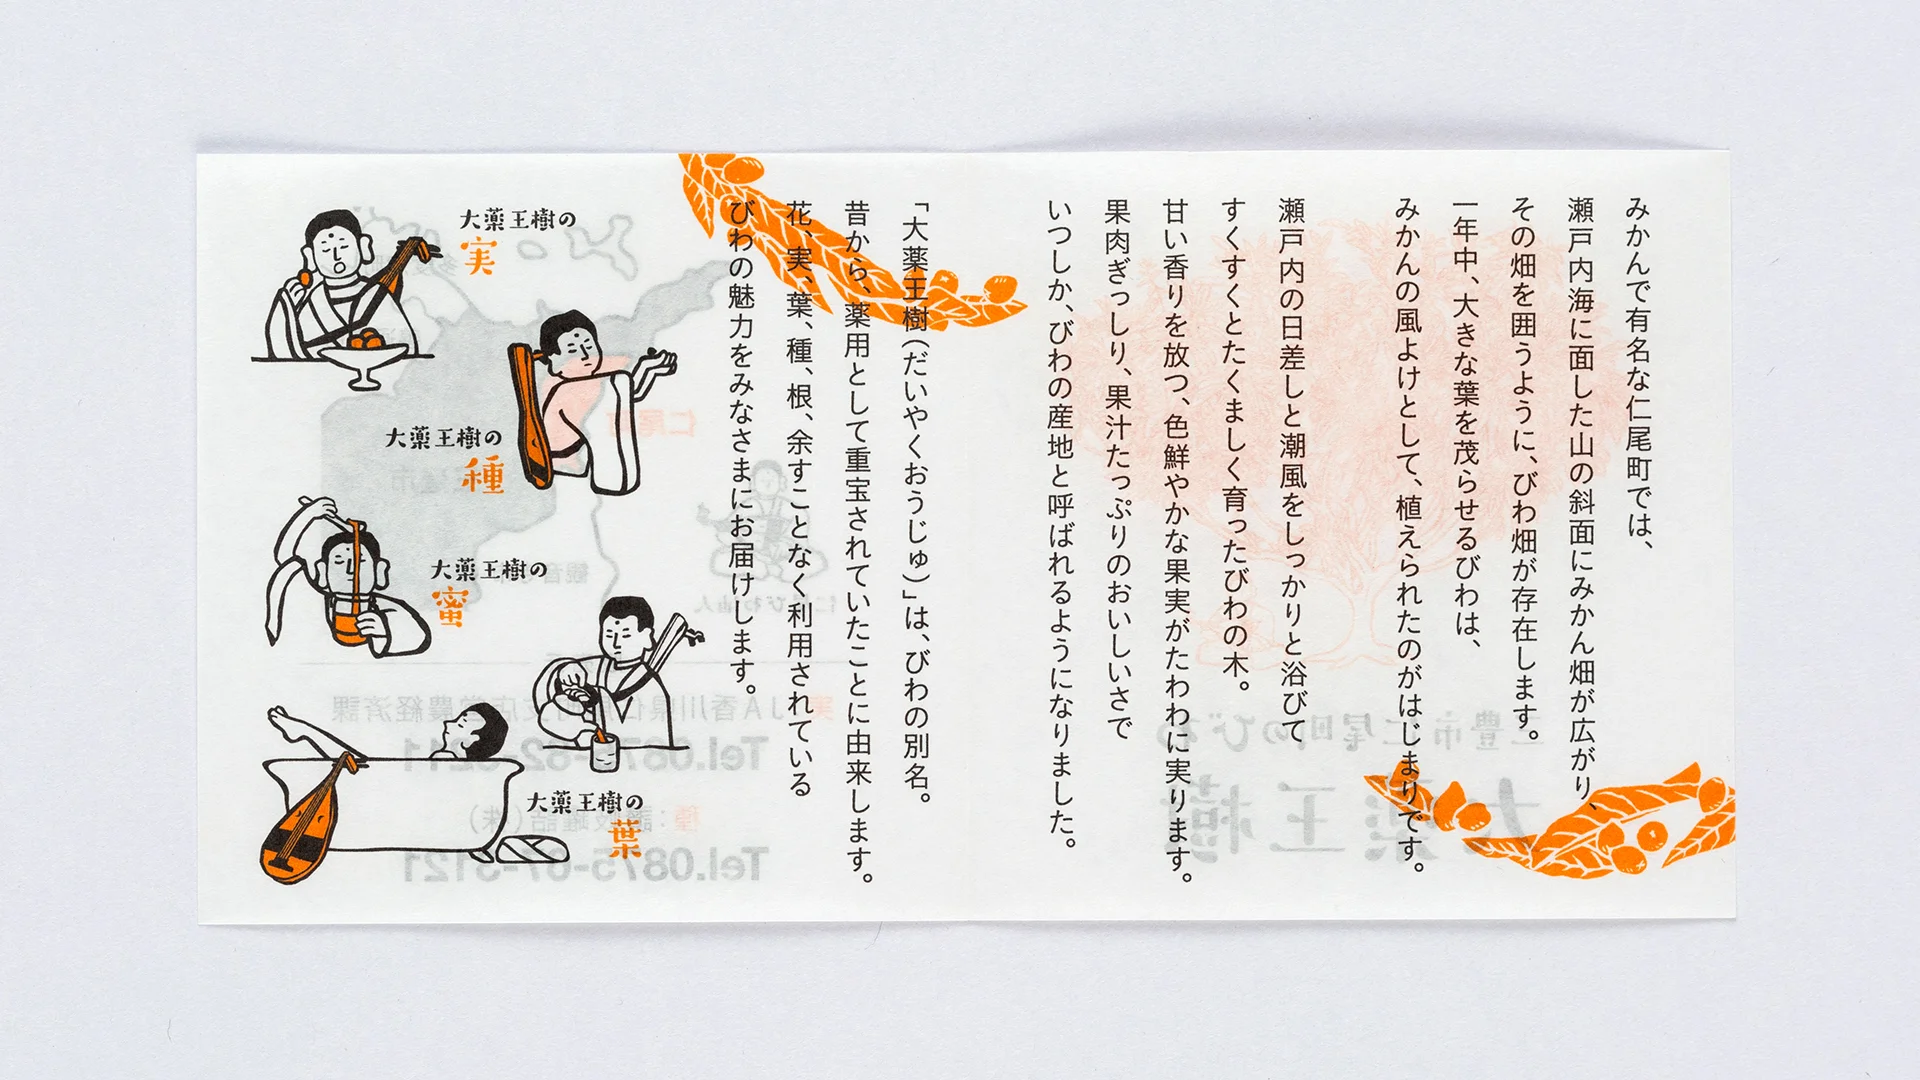 みかんで有名な仁尾町では、
瀬戸内海に面した山の斜面にみかん畑が広がり、
その畑を囲うように、びわ畑が存在します。
一年中、大きな葉を茂らせるびわは、
みかんの風よけとして、植えられたのがはじまりです。
瀬戸内の日差しと潮風をしっかりと浴びて
すくすくとたくましく育ったびわの木。
甘い香りを放つ、色鮮やかな果実がたわわに実ります。
果肉ぎっしり、果汁たっぷりのおいしいさで
いつしか、びわの産地と呼ばれるようになりました。
「大薬王樹(だいやくおうじゅ)」は、びわの別名。
昔から、薬用として重宝されていたことに由来します。
花、実、葉、種、根、余すことなく利用されている
びわの魅力をみなさまにお届けします。
大薬王樹の
実
大薬王樹の
種
大薬王樹の
蜜
大薬王樹の
葉
三豊市仁尾町のびわ
大薬王樹
仁尾町
仁尾びわ仙人
Tel.0875-82-3211
Tel.0875-67-3121